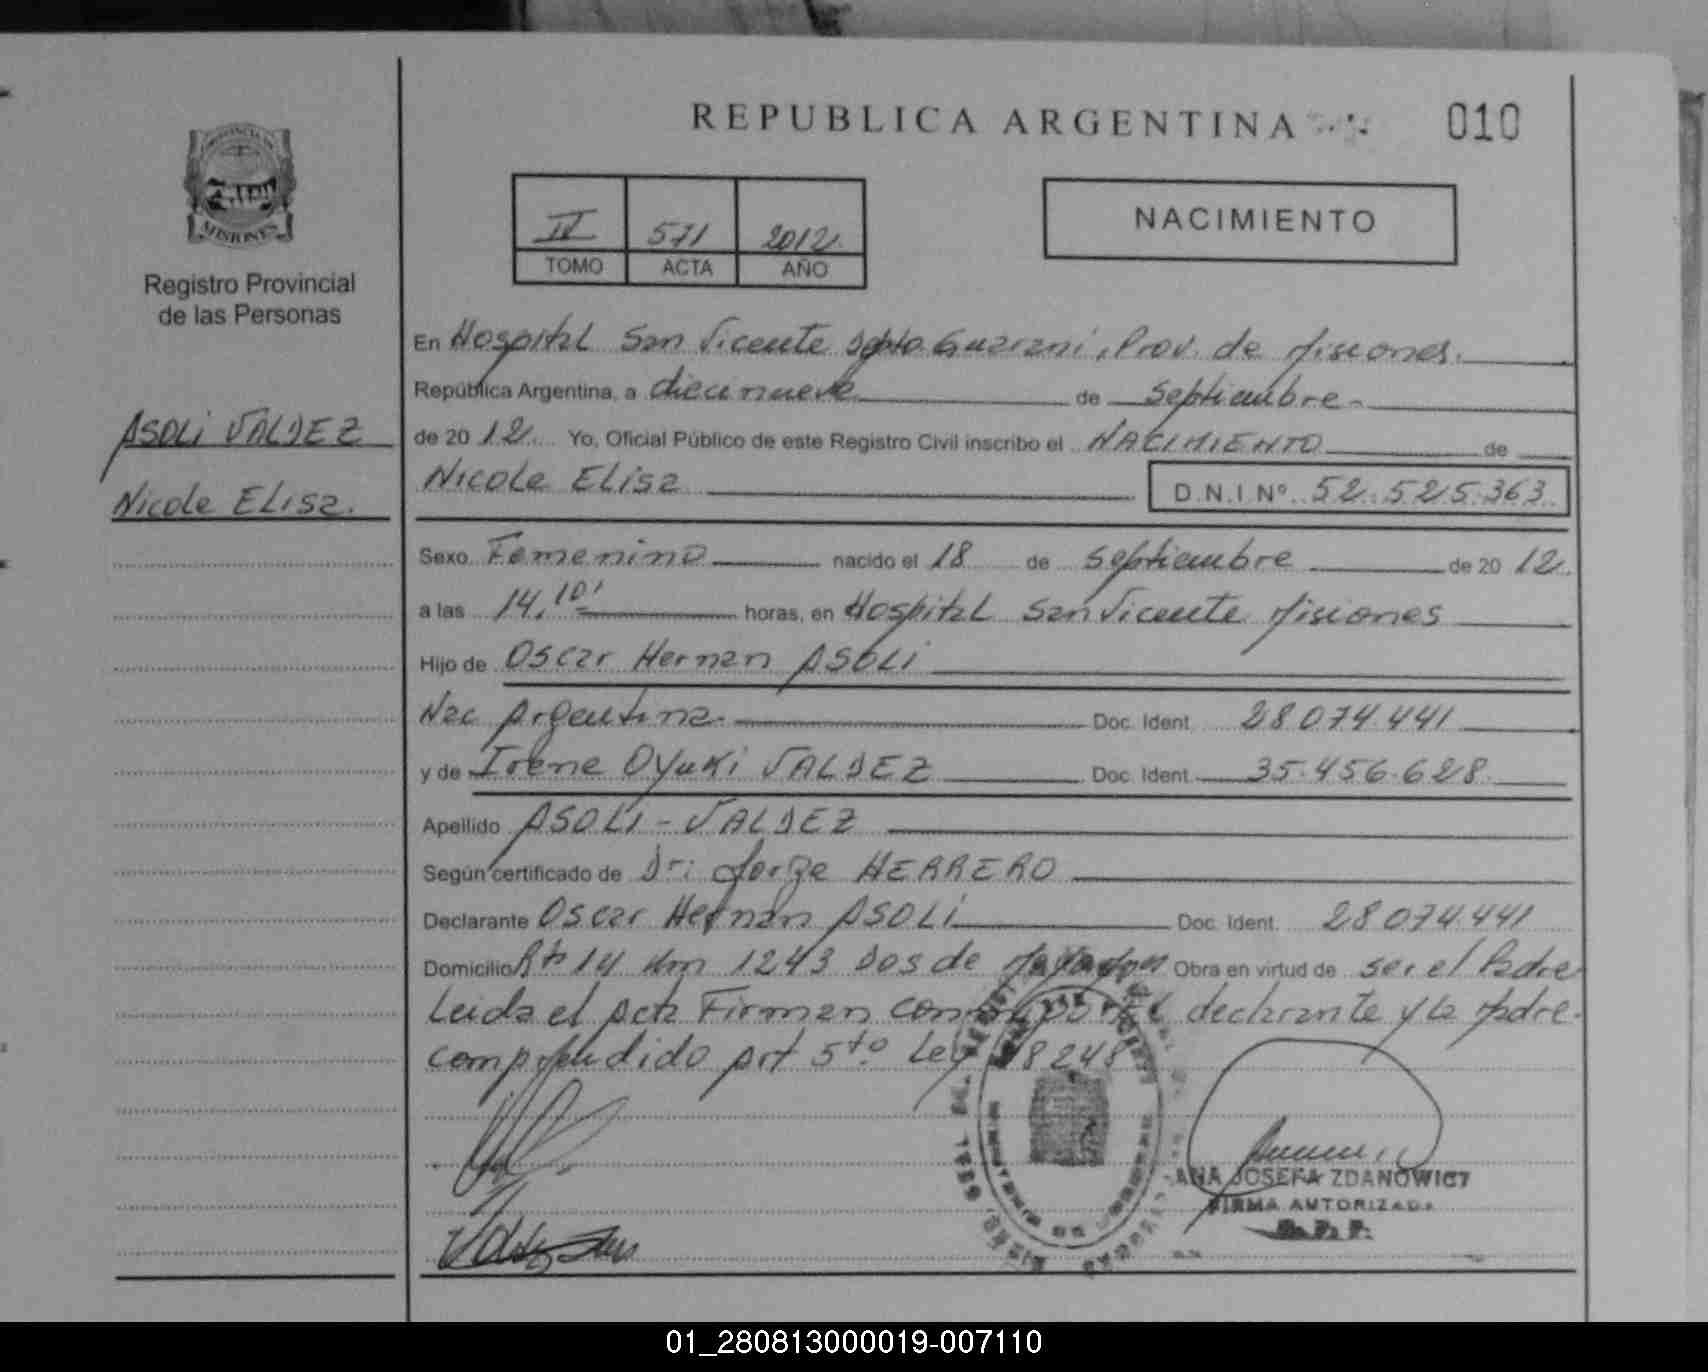 REPUBLICA ARGENTINA
010
PROVINCIA DE
MISIONES
Registro Provincial
de las Personas
IV 571 2012
TOMO ACTA AÑO
NACIMIENTO
ASOLI VALDEZ
Nicole Elisa.
En Hospital San Vicente Dpto. Guarani, Prov. de Misiones.
República Argentina, a diecinueve de Septiembre
de 20 12 Yo, Oficial Público de este Registro Civil inscribo el NACIMIENTO de
Nicole Elisa D.N.I Nº 52.525.363
Sexo Femenino nacido el 18 de Septiembre de 20 12
a las 14,10' horas, en Hospital San Vicente Misiones
Hijo de Oscar Hernan ASOLI
Nac Argentina. Doc. Ident. 28.074.441
y de Irene Oyuki VALDEZ Doc. Ident. 35.456.628
Apellido ASOLI - VALDEZ
Según certificado de Dr: Jorge HERRERO
Declarante Oscar Hernan ASOLI Doc. Ident. 28.074.441
Domicilio Rta 14 Km 1243 Dos de Mayo Obra en virtud de ser el Padre
Leida el Acta Firman el declarante y la Madre.
comprendido Art 5to Ley 18248
ANA JOSEFA ZDANOWICZ
FIRMA AUTORIZADA
01_280813000019-007110